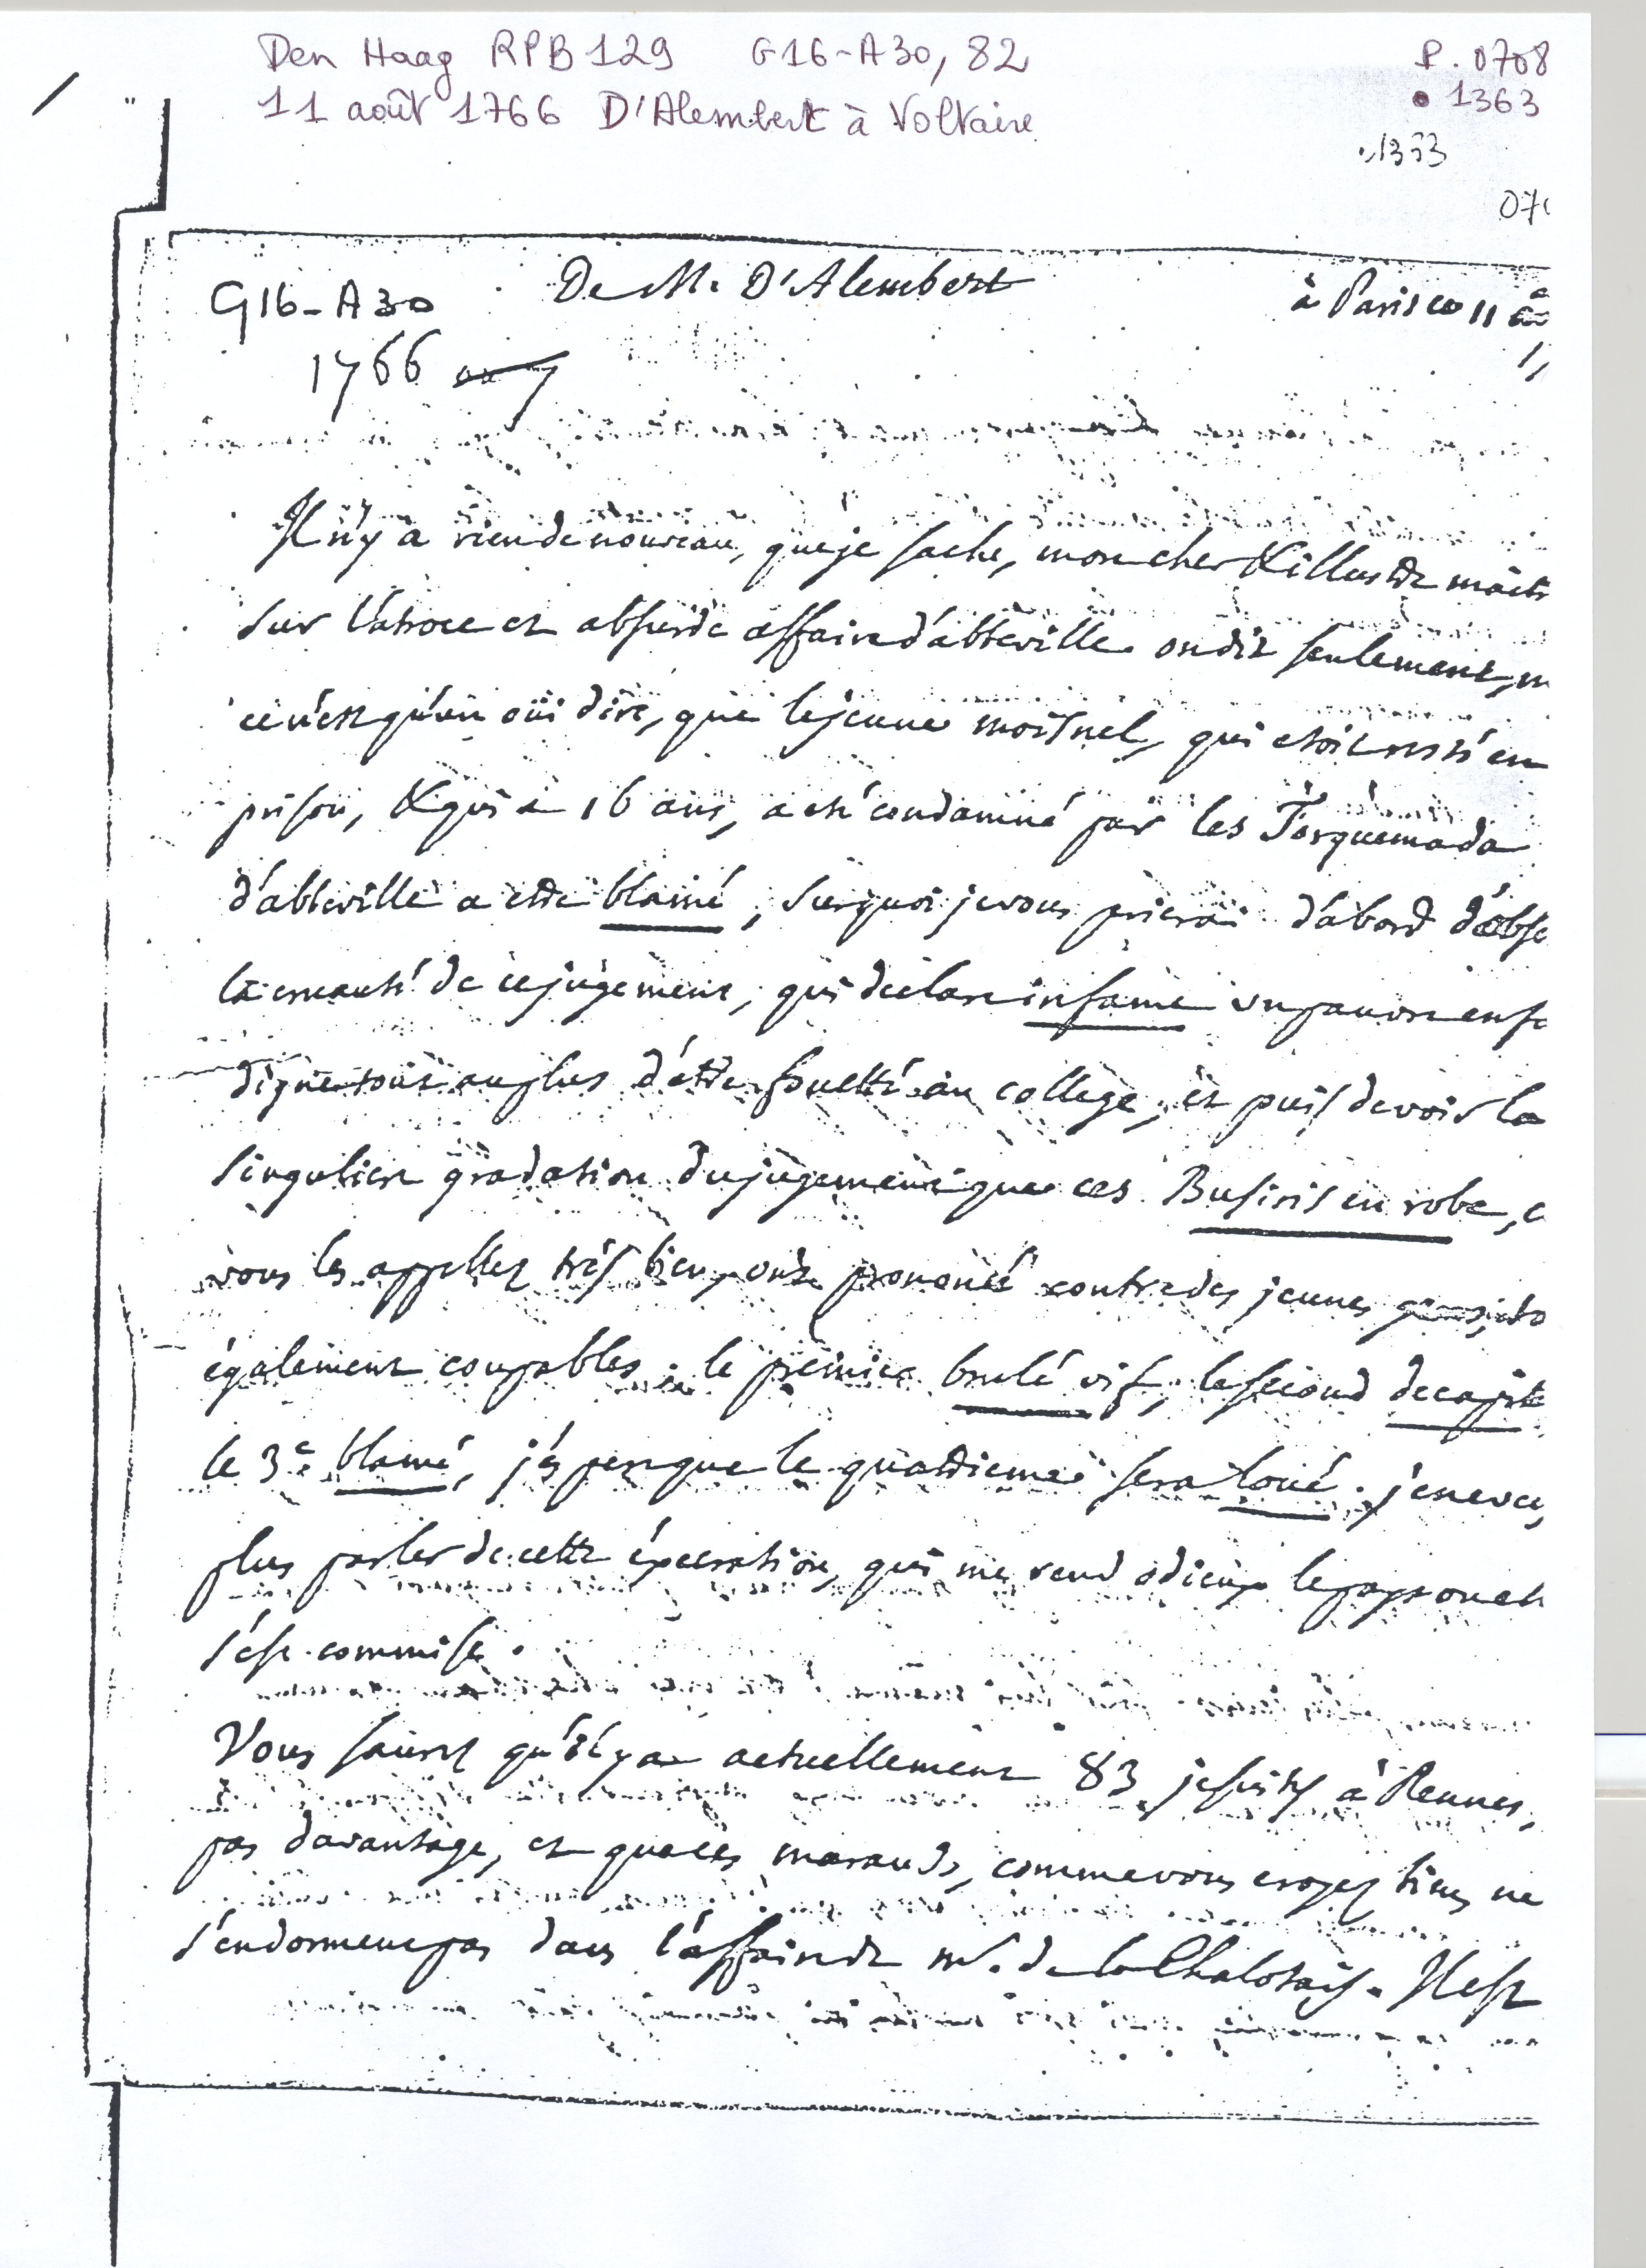 Den Haag RPB 129 G16-A30, 82
P. 0708
11 août 1766 D'Alembert à Voltaire
• 1363
1353
G16-A30
De M. D'Alembert
à Paris ce 11
1766
Il n'y a rien de nouveau, que je sache, mon cher & illustre
sur l'atroce et absurde affaire d'abbeville. on dit seulement,
ce n'est qu'un oüi dire, que le jeune moisnel, qui etoit resté en
prison, & qui a 16 ans, a eté condamné par les Torquemada
d'abbeville a etre blamé ; surquoi je vous prierai d'abord
la cruauté de ce jugement, qui declare infame un pauvre
digne tout au plus d'être fouetté au college, et puis de voir la
singuliere gradation du jugement que ces Busiris en robe,
vous les appellez très bien, ont prononcé contre des jeunes gens,
également coupables : le premier brulé vif, le second
le 3e. blamé, j'espere que le quatrieme sera loué. je ne
plus parler de cette éxecration, qui me rend odieux le pays ou
s'est commise.
Vous saurez qu'il y a actuellement 83 jesuites à Rennes,
pas davantage, et que ces marauds, comme vous croyez bien, ne
s'endorment pas dans l'affaire de mr. de la Chalotais. Il est